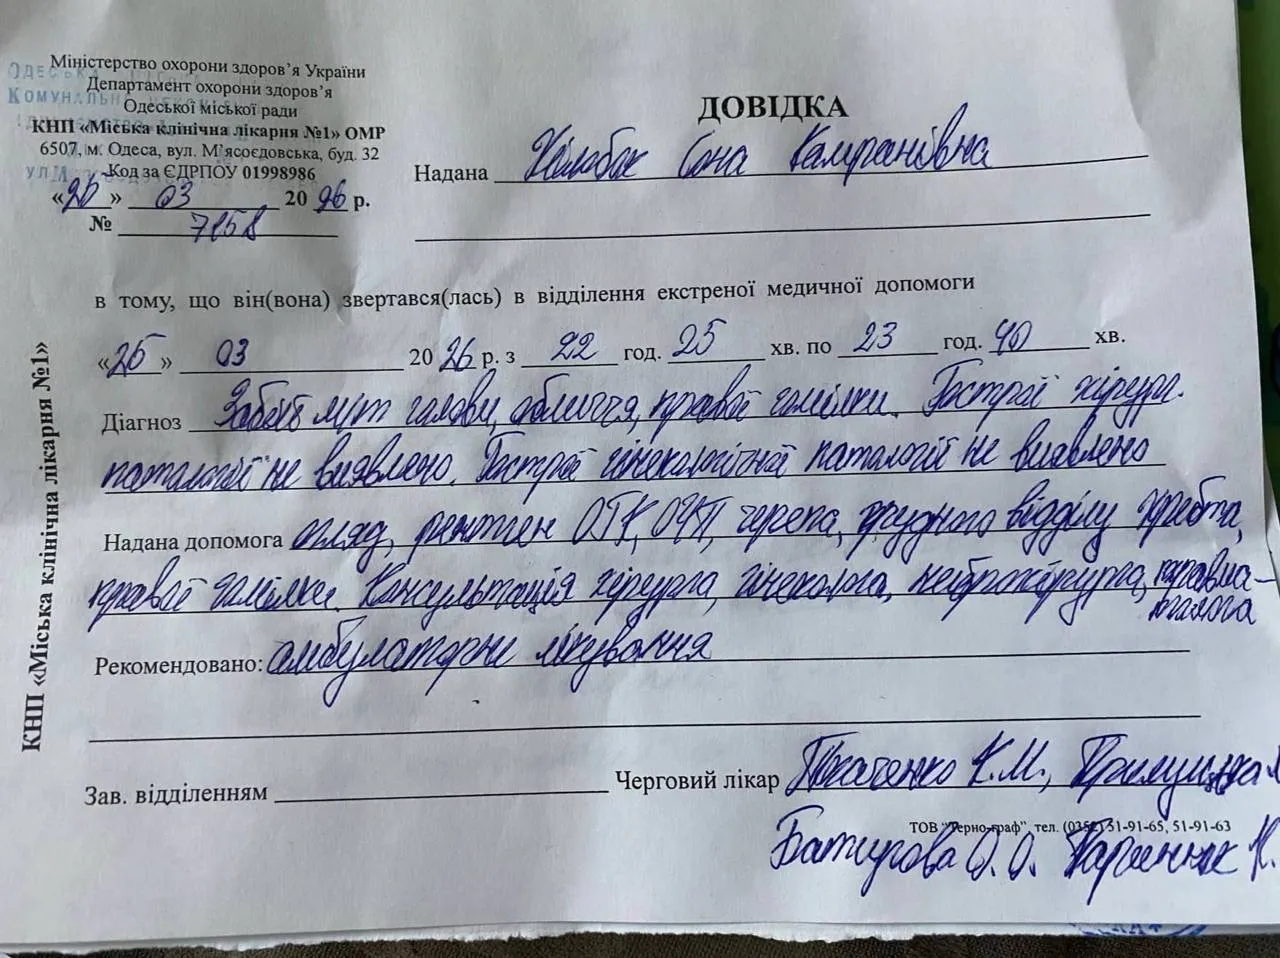 Міністерство охорони здоров'я України
Департамент охорони здоров'я
Одеської міської ради
КНП «Міська клінічна лікарня №1» ОМР
6507, м. Одеса, вул. М'ясоєдовська, буд. 32
Код за ЄДРПОУ 01998986
«26» 03 2026 р.
№ 7158
ДОВІДКА
Надана Сона Камранівна
в тому, що він(вона) звертався(лась) в відділення екстреної медичної допомоги
«25» 03 2026 р. з 22 год. 25 хв. по 23 год. 40 хв.
Діагноз Забій м/т голови, обличчя, правої гомілки. Гострої хірург.
патології не виявлено. Гострої гінекологічної патології не виявлено
Надана допомога огляд, рентген ОГК, ОЧП, черепа, грудного відділу хребта,
правої гомілки. Консультація хірурга, гінеколога, нейрохірурга, травма-
толога
Рекомендовано: амбулаторне лікування
Зав. відділенням
Черговий лікар Ткаченко К.М.,
ТОВ "Терно-граф", тел. (0352) 51-91-65, 51-91-63
О.О.
КНП «Міська клінічна лікарня №1»